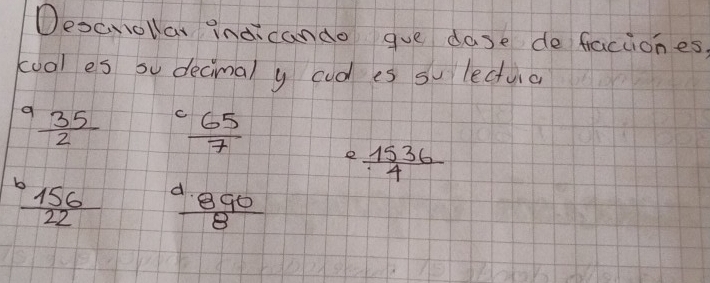 Desarrollar indicando que clase de fracciones,
cual es su decimal y cual es su lectura
a 35/2
c 65/7
e 1536/4
b 156/22
d. 890/8